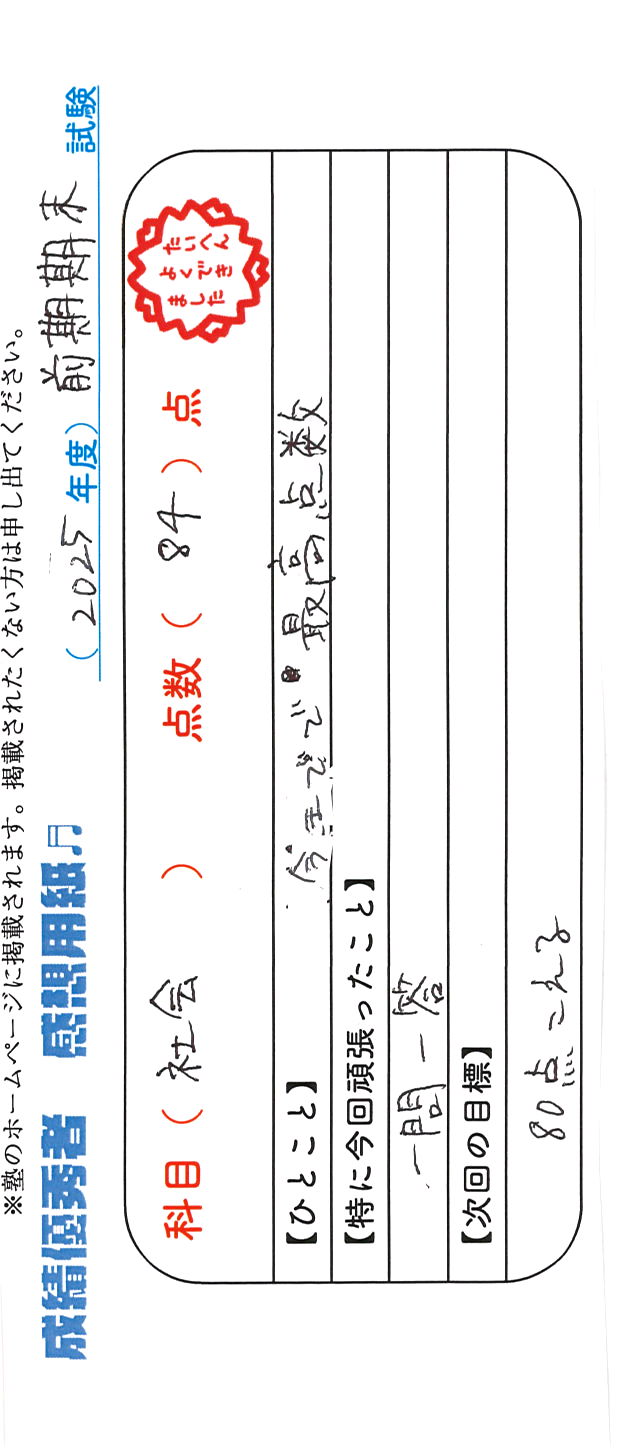 ※塾のホームページに掲載されます。掲載されたくない方は申し出てください。
成績優秀者 感想用紙♬ (2025年度)前期期末 試験
科目(社会) 点数(84)点
たいへん
よくでき
ました
【ひとこと】 今までで最高点数
【特に今回頑張ったこと】
一問一答
【次回の目標】
80点これる